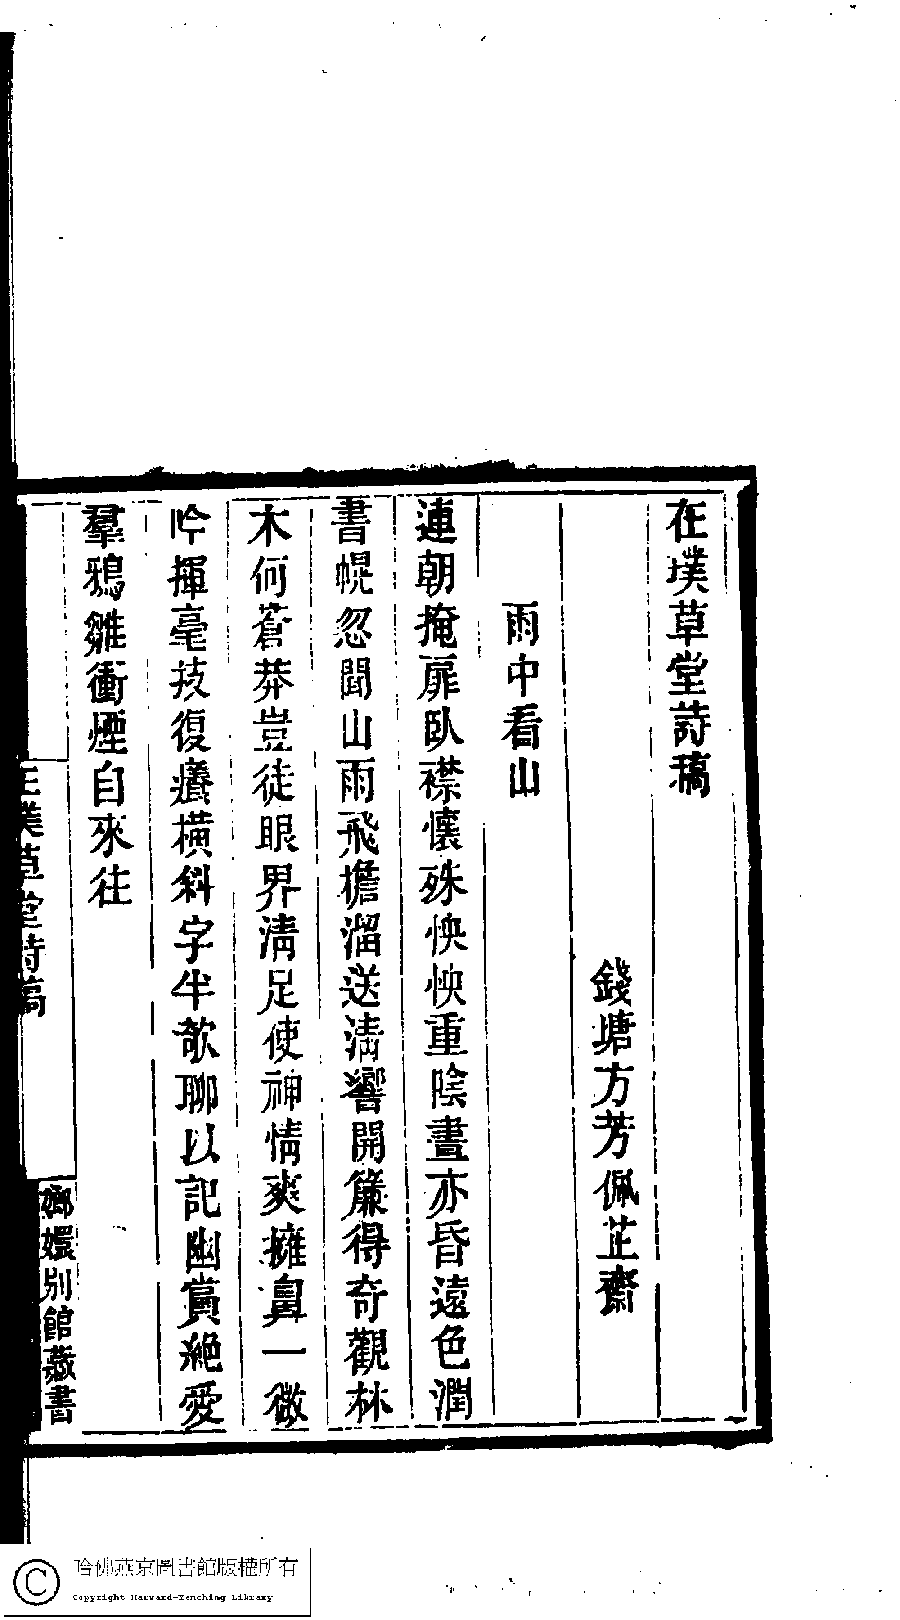 在璞草堂詩稿
錢塘方芳佩芷齋
雨中看山
連朝掩扉臥襟懷殊怏怏重陰晝亦昏遠色潤
書幌忽聞山雨飛擔溜送淸響開簾得奇觀林
木何蒼莽豈徒眼界淸足使神情爽擁鼻一微
吟揮毫技復癢橫斜字半欹聊以記幽賞絕愛
羣鴉雛衝煙自來往
在璞草堂詩稿
嫏嬛別館藏書
哈佛燕京圖書館版權所有
Copyright Harvard-Yenching Library